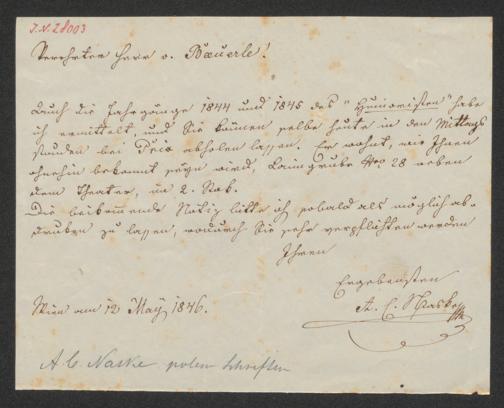 J.N. 28003
Verehrter Herr v. Bäuerle!
Auch die Jahrgänge 1844 und 1845 des "Humoristen" habe
ich ermittelt, und Sie können selbe heute in den Mittags
stunden bei abholen lassen. Er wohnt, wie Ihnen
ohnehin bekannt seyn wird, Laimgrube Nro 28 neben
dem Theater, im 2. Stock.
Die beikommende Notiz bitte ich sobald als möglich ab-
drucken zu lassen, wodurch Sie sehr verpflichten werden
Ihren
Ergebensten
A. C. Naske
Wien am 12 May 1846.
A C. Naske